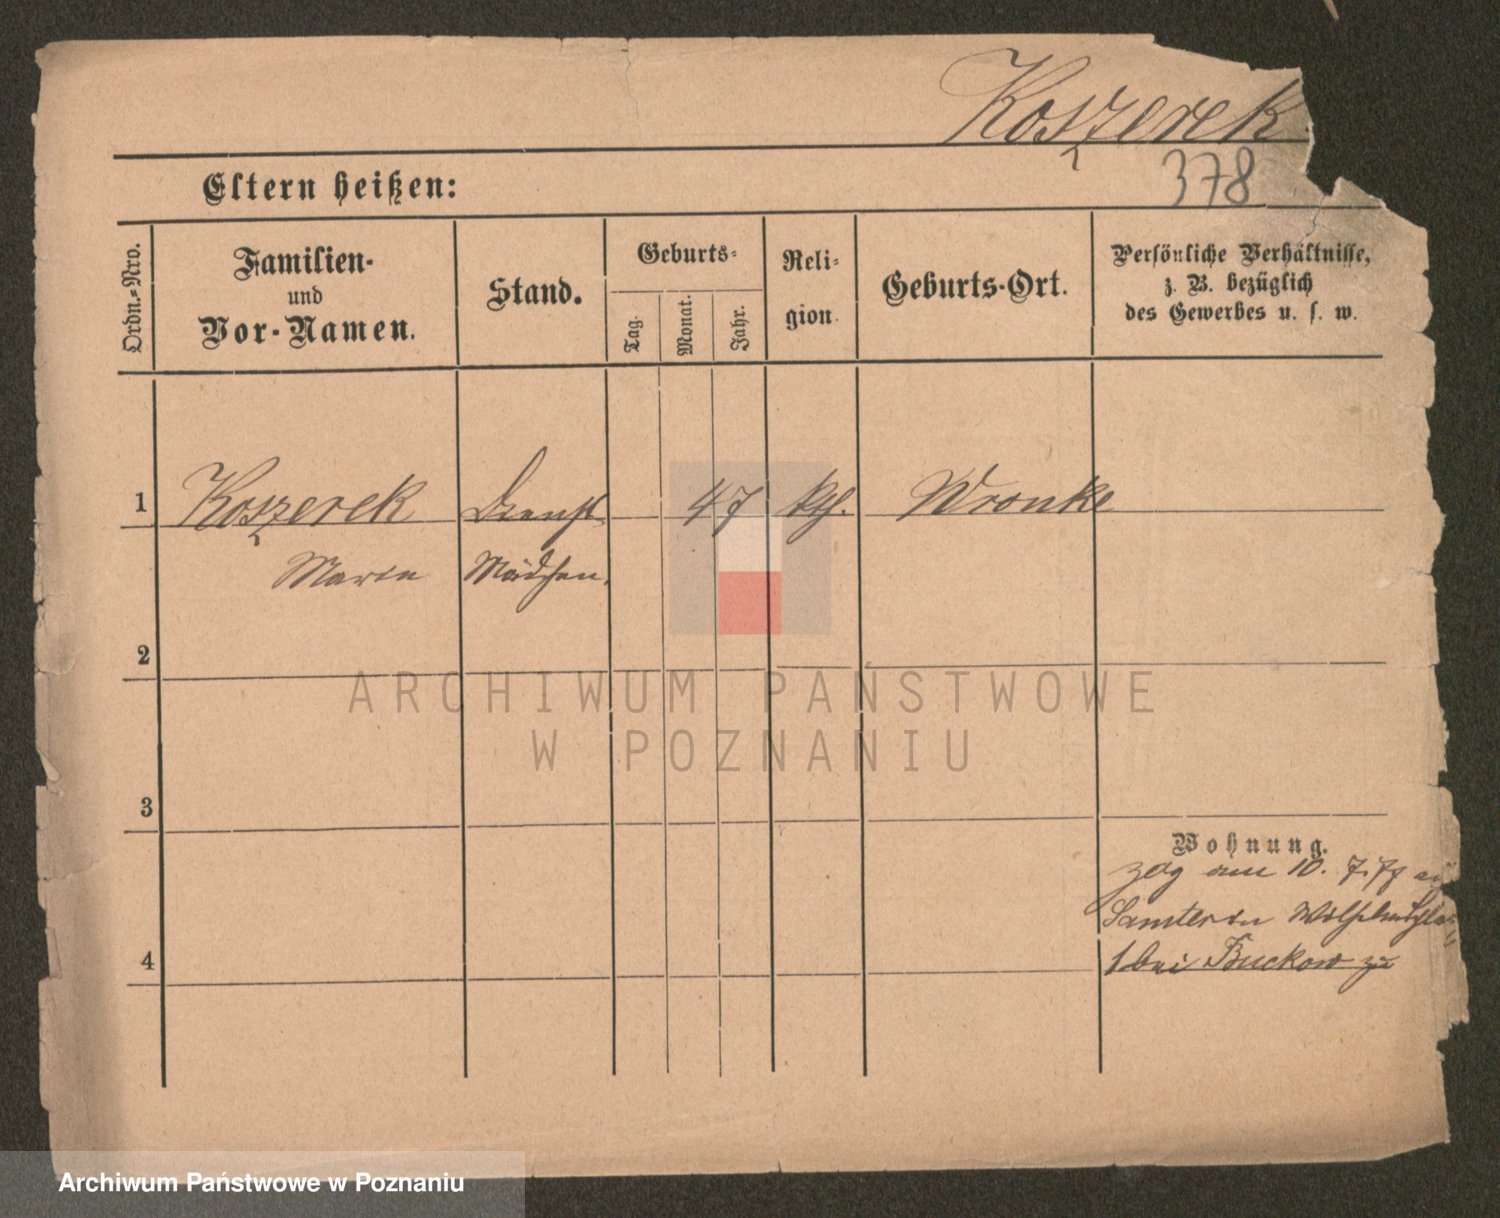 Koszerek
378
Eltern heißen:
Ordn.-Nro.
Familien-
und
Vor-Namen.
Stand.
Geburts-
Tag.
Monat.
Jahr.
Reli-
gion.
Geburts-Ort.
Persönliche Verhältnisse,
z. B. bezüglich
des Gewerbes u. s. w.
1 Koszerek Dienst 47 kth. Wronke
Marie Mädchen.
2
ARCHIWUM PAŃSTWOWE
W POZNANIU
3
Wohnung.
zog am 10. 7. 79 au
Samter in
4
1 bei Buckow zu
Archiwum Państwowe w Poznaniu